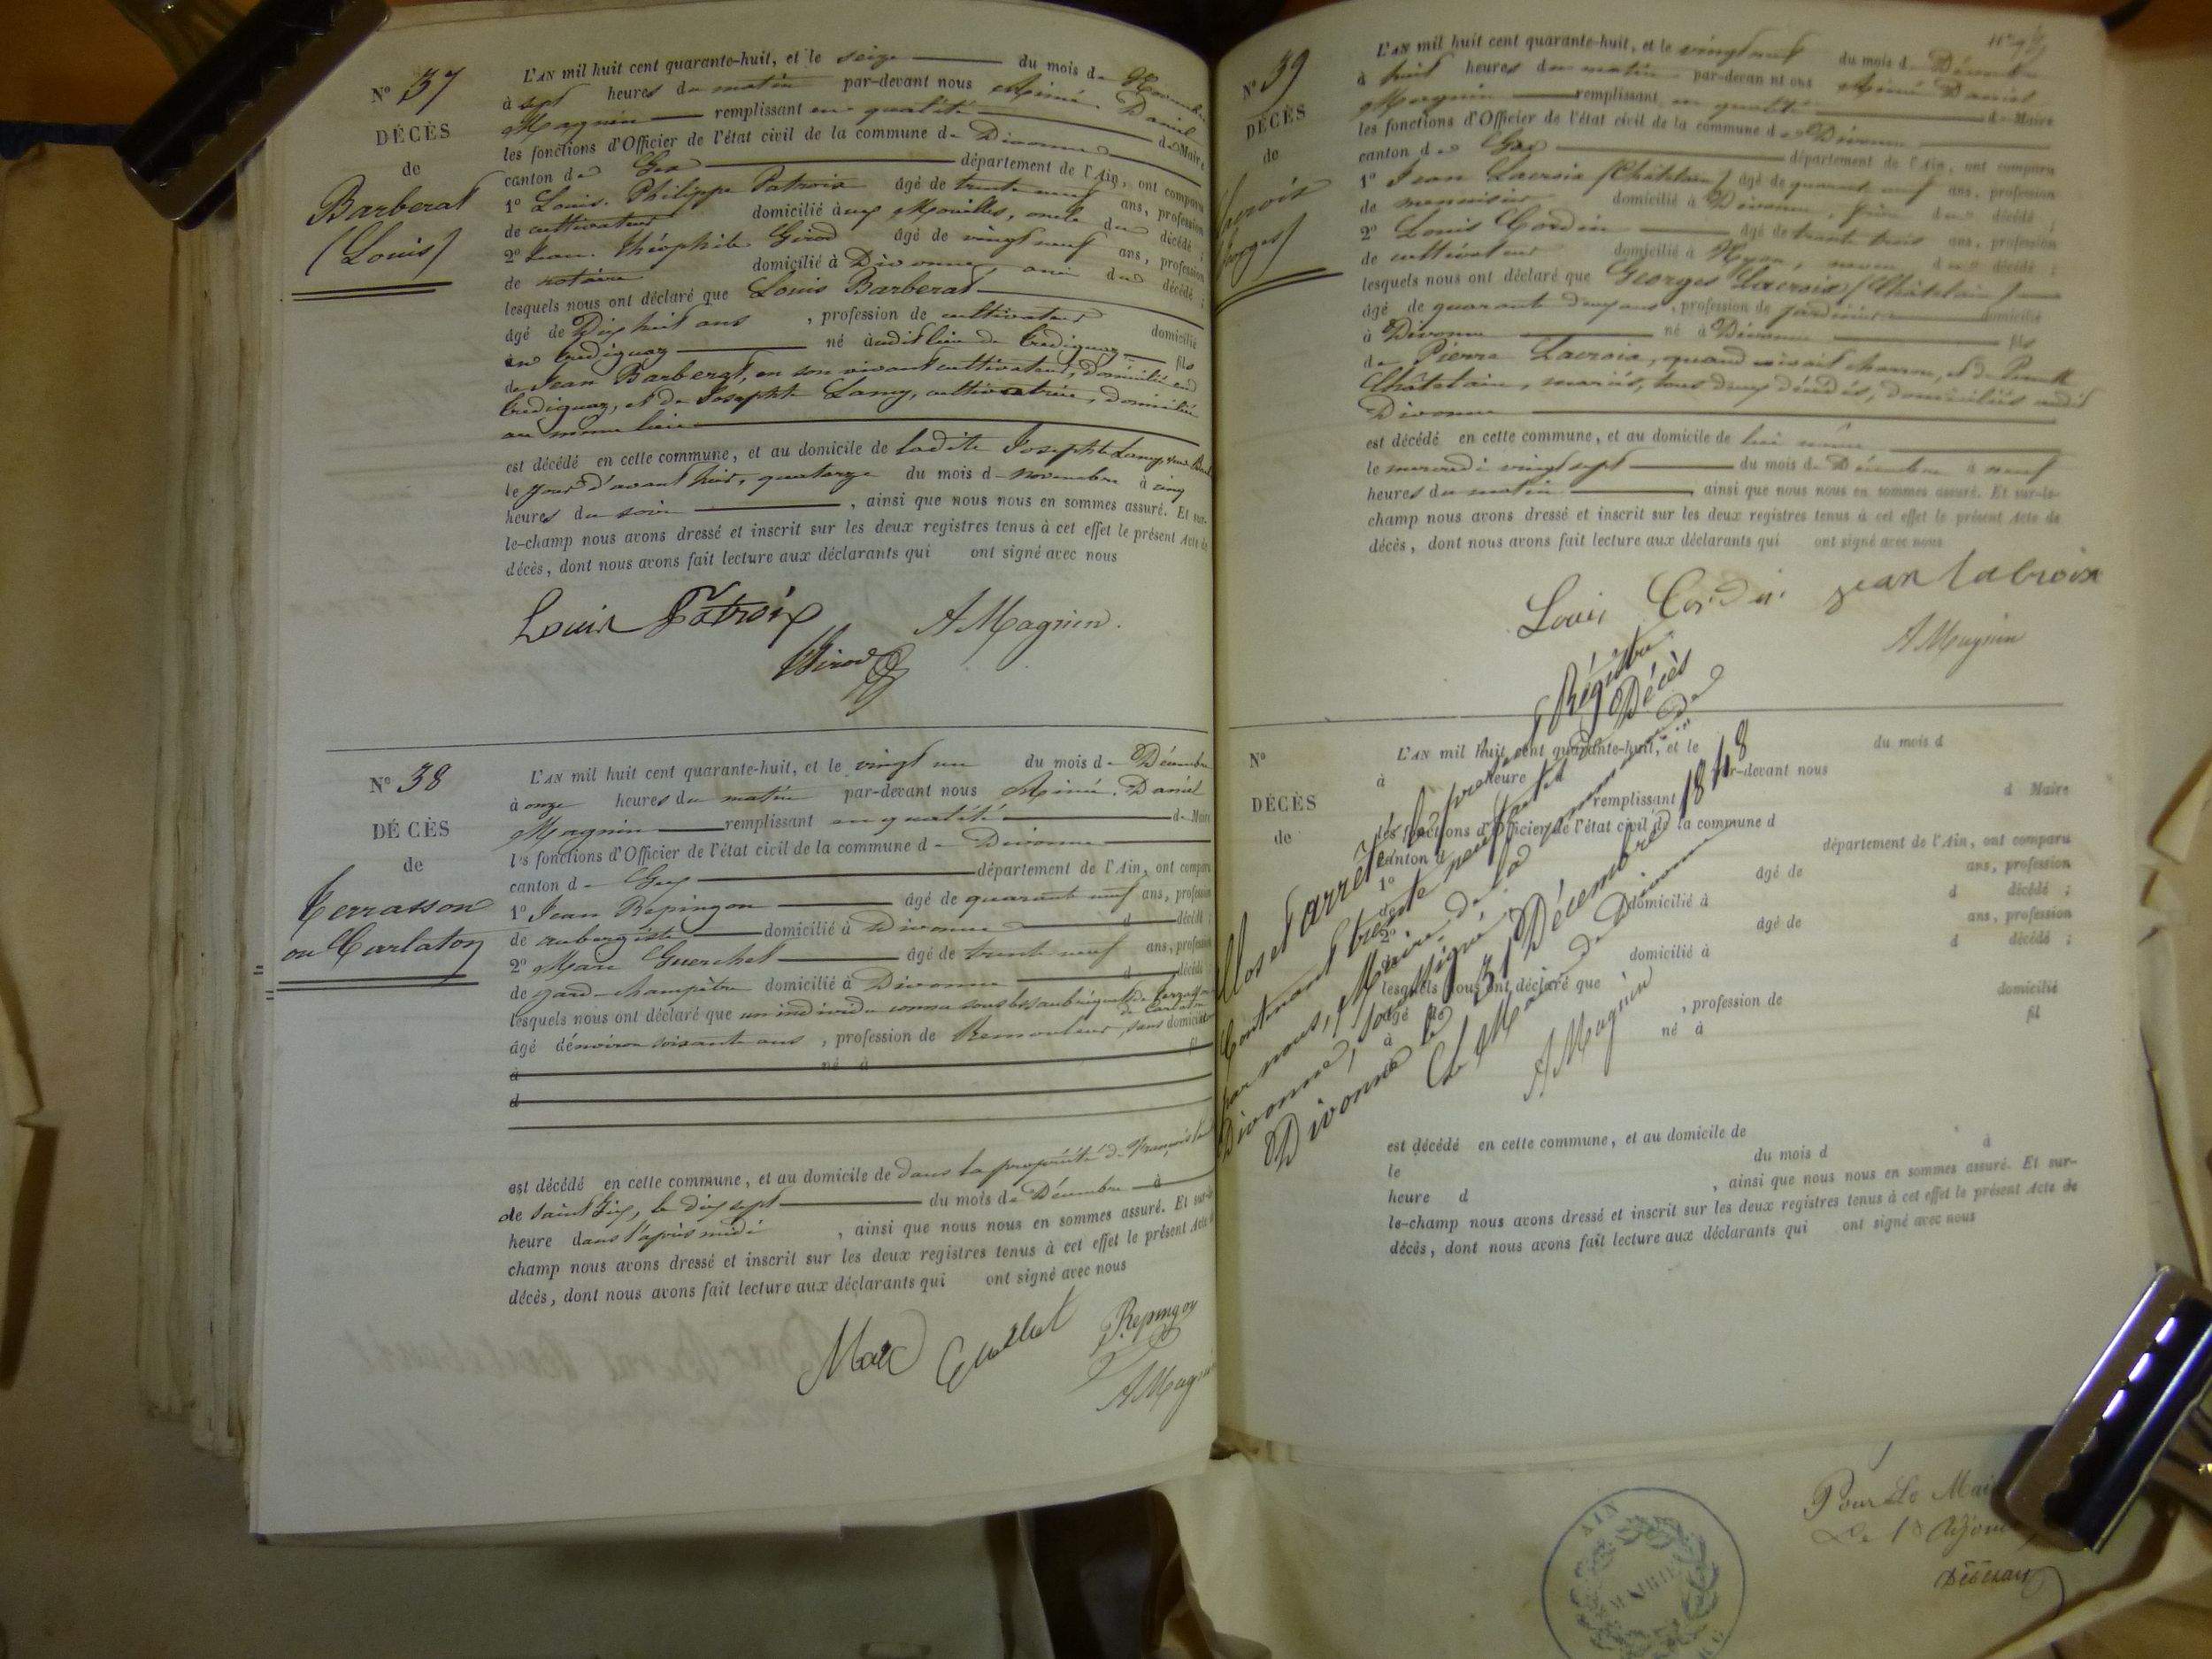 N° 37
DÉCÈS
de
Barberat
(Louis)
L'AN mil huit cent quarante-huit, et le seize du mois de Novembre
à sept heures du matin par-devant nous Aimé Daniel
Magnin remplissant en qualité de Maire
les fonctions d'Officier de l'état civil de la commune de Divonne
canton de Gex département de l'Ain, ont comparu
1° Louis Philippe Patroix âgé de trente neuf ans, profession
de cultivateur domicilié aux Mouilles, oncle du décédé ;
2° Jean Théophile Girod âgé de vingt neuf ans, profession
de notaire domicilié à Divonne, ami du décédé ;
lesquels nous ont déclaré que Louis Barberat
âgé de Dix huit ans , profession de cultivateur domicilié
en Crediguay né audit lieu de Crediguay fils
de Jean Barberat, en son vivant cultivateur, domicilié en
Crediguay, et de Josephte Lamy, cultivatrice, domiciliée
au même lieu
est décédé en cette commune, et au domicile de ladite Josephte Lamy
le jour d'avant hier, quatorze du mois de novembre à cinq
heures du soir , ainsi que nous nous en sommes assuré. Et sur-
le-champ nous avons dressé et inscrit sur les deux registres tenus à cet effet le présent Acte de
décès, dont nous avons fait lecture aux déclarants qui ont signé avec nous
Louis Patroix
Girod
A Magnin
N° 38
DÉCÈS
de
Terrasson
ou Carlaton
L'AN mil huit cent quarante-huit, et le vingt un du mois de Décembre
à onze heures du matin par-devant nous Aimé Daniel
Magnin remplissant en qualité de Maire
les fonctions d'Officier de l'état civil de la commune de Divonne
canton de Gex département de l'Ain, ont comparu
1° Jean Repingon âgé de quarante neuf ans, profession
de aubergiste domicilié à Divonne d décédé ;
2° Marc Guerchet âgé de trente neuf ans, profession
de gard-champêtre domicilié à Divonne d décédé
lesquels nous ont déclaré que un individu connu sous les sobriquets de Terrasson
de Carlaton
âgé d'environ soixante ans , profession de Remouleur, sans domicilié
à né à fil
d
est décédé en cette commune, et au domicile de dans la propriété de François
de Saint Gix, le dix sept du mois de Décembre à
heure dans l'après midi , ainsi que nous nous en sommes assuré. Et sur-le-
champ nous avons dressé et inscrit sur les deux registres tenus à cet effet le présent Acte
décès, dont nous avons fait lecture aux déclarants qui ont signé avec nous
Marc
Repingon
A Magnin
N° 39
DÉCÈS
de
L'AN mil huit cent quarante-huit, et le vingt neuf du mois de Décembre
à huit heures du matin par-devan nt ous Aimé Daniel
Magnin remplissant en qualité de Maire
les fonctions d'Officier de l'état civil de la commune de Divonne
canton de Gex département de l'Ain, ont comparu
1° Jean Lacroix (Châtelain) âgé de quarante neuf ans, profession
de menuisier domicilié à Divonne, frère du décédé ;
2° Louis Cordin âgé de trente trois ans, profession
de cultivateur domicilié à Nyon, neveu du décédé ;
lesquels nous ont déclaré que Georges Lacroix (Châtelain)
âgé de quarante deux ans , profession de jardinier domicilié
à Divonne né à Divonne fils
de Pierre Lacroix, quand vivait charron, et de
Châtelain, mariés, tous deux décédés, domiciliés audit
Divonne
est décédé en cette commune, et au domicile de lui même
le mercredi vingt sept du mois de Décembre à neuf
heures du matin , ainsi que nous nous en sommes assuré. Et sur-le-
champ nous avons dressé et inscrit sur les deux registres tenus à cet effet le présent Acte de
décès, dont nous avons fait lecture aux déclarants qui ont signé avec nous
Louis Cordin
jean lacroix
A Magnin
N°
DÉCÈS
de
L'AN mil huit cent quarante-huit, et le du mois d
à heure d par-devant nous
remplissant d Maire
les fonctions d'Officier de l'état civil de la commune d
canton d département de l'Ain, ont comparu
1° âgé de ans, profession
de domicilié à d décédé ;
2° âgé de ans, profession
domicilié à d décédé ;
lesquels nous ont déclaré que
âgé de , profession de domicilié
à né à fil
est décédé en cette commune, et au domicile de
le du mois d à
heure d , ainsi que nous nous en sommes assuré. Et sur-
le-champ nous avons dressé et inscrit sur les deux registres tenus à cet effet le présent Acte de
décès, dont nous avons fait lecture aux déclarants qui ont signé avec nous
Clos et arrêté le présent Régistre
Contenant trente neuf actes de Décès
par nous, Maire de la commune de
Divonne, soussigné
Divonne le 31 Décembre 1848
Le Maire de Divonne
A Magnin
Pour Le Mai
Le 1er Adjoint
AIN
MAIRIE